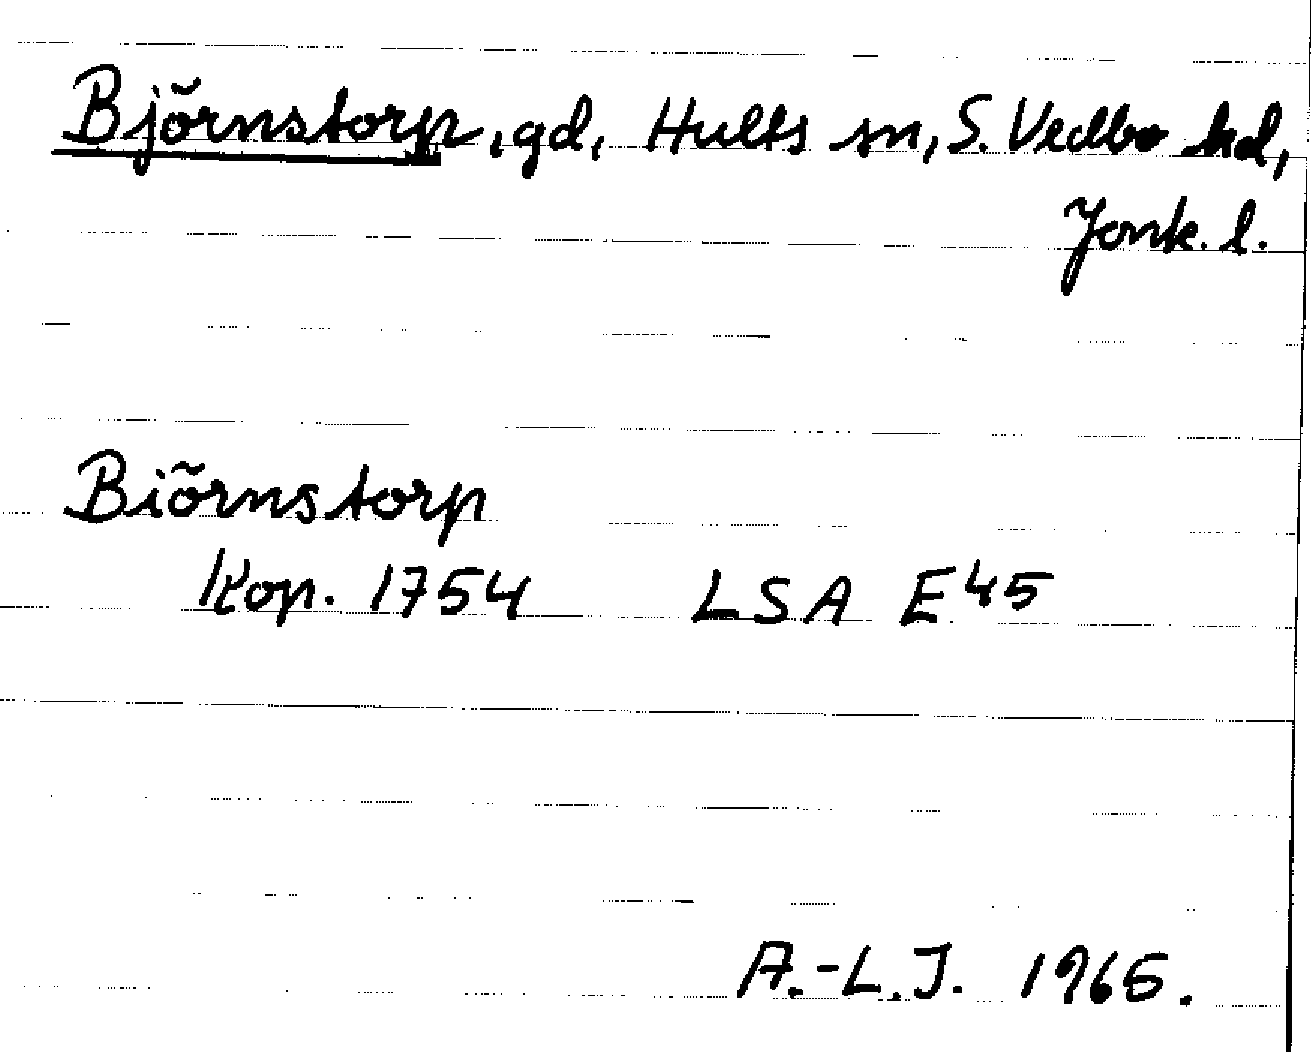 Björnstorp, gd, Hults sn, S. Vedbo hd,
Jönk. l.
Biörnstorp
Kop. 1754 LSA E45
A.-L.J. 1965.